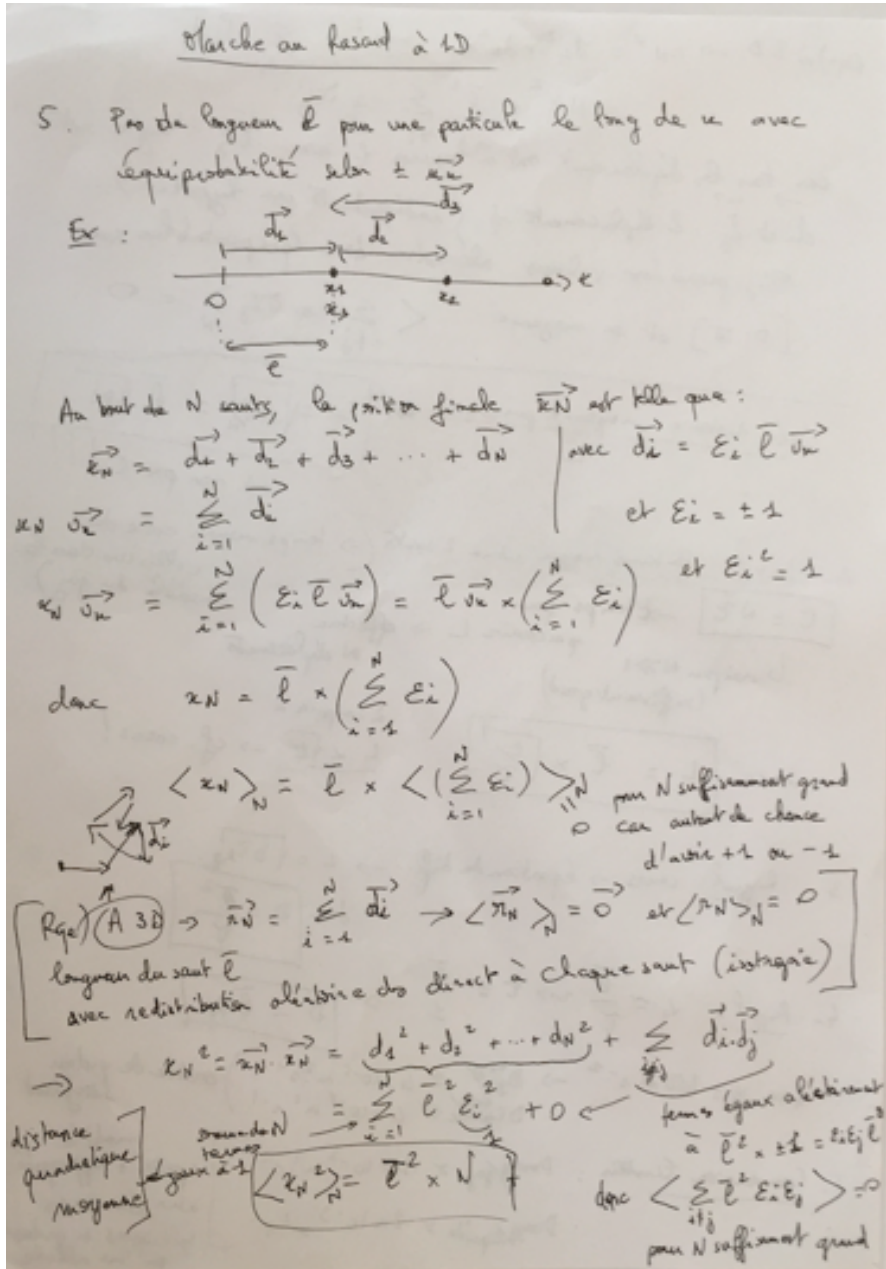 Marche au hasard à 1D
5. Pas de longueur l̄ pour une particule le long de x avec
équiprobabilité selon ± u⃗x
d⃗3
Ex : d⃗1 d⃗2
0 x1 x2 x
x3
l̄
Au bout de N sauts, la position finale x⃗N est telle que :
x⃗N = d⃗1 + d⃗2 + d⃗3 + ... + d⃗N | avec d⃗i = εi l̄ u⃗x
xN u⃗x = Σ_{i=1}^{N} d⃗i et εi = ± 1
xN u⃗x = Σ_{i=1}^{N} (εi l̄ u⃗x) = l̄ u⃗x × (Σ_{i=1}^{N} εi) et εi² = 1
donc xN = l̄ × (Σ_{i=1}^{N} εi)
< xN >_N = l̄ × <(Σ_{i=1}^{N} εi)>_N pour N suffisamment grand
= 0 car autant de chance
d'avoir +1 ou -1
d⃗i
Rqe) A 3D → r⃗N = Σ_{i=1}^{N} d⃗i → < r⃗N >_N = 0⃗ et < rN >_N = 0
longueur du saut l̄
avec redistribution aléatoire des direct à chaque saut (isotropie)
xN² = x⃗N . x⃗N = d1² + d2² + ... + dN² + Σ_{i≠j} d⃗i.d⃗j
→ = Σ_{i=1}^{N} l̄² εi² + 0 ← termes égaux aléatoirement
1
à l̄² × ±1 = εi εj l̄²
distance
quadratique
moyenne
somme de N
termes
égaux à 1
<xN²>_N = l̄² × N
donc < Σ_{i≠j} l̄² εi εj > = 0
pour N suffisamment grand